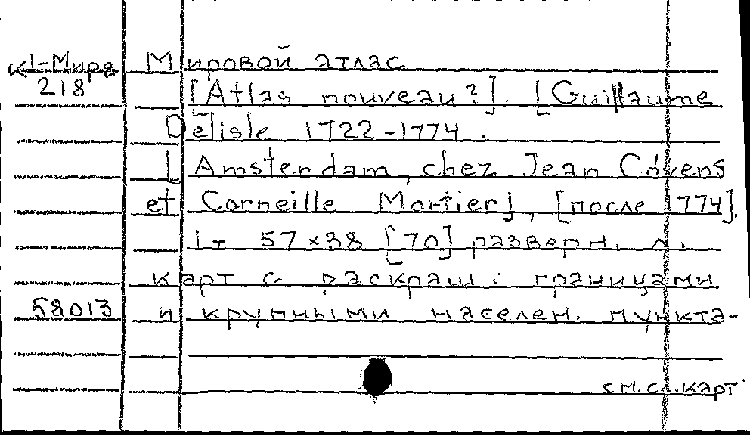 к1-Мира
218
Мировой атлас
[Atlas nouveau?]. [Guillaume
Delisle 1722-1774.
[Amsterdam, chez Jean Cóvens
et Corneille Mortier], [после 1774].
57×38 [70] разверн. л.
карт с раскраш. границами
58013 и крупными населен. пункта-
см. сл. карт.